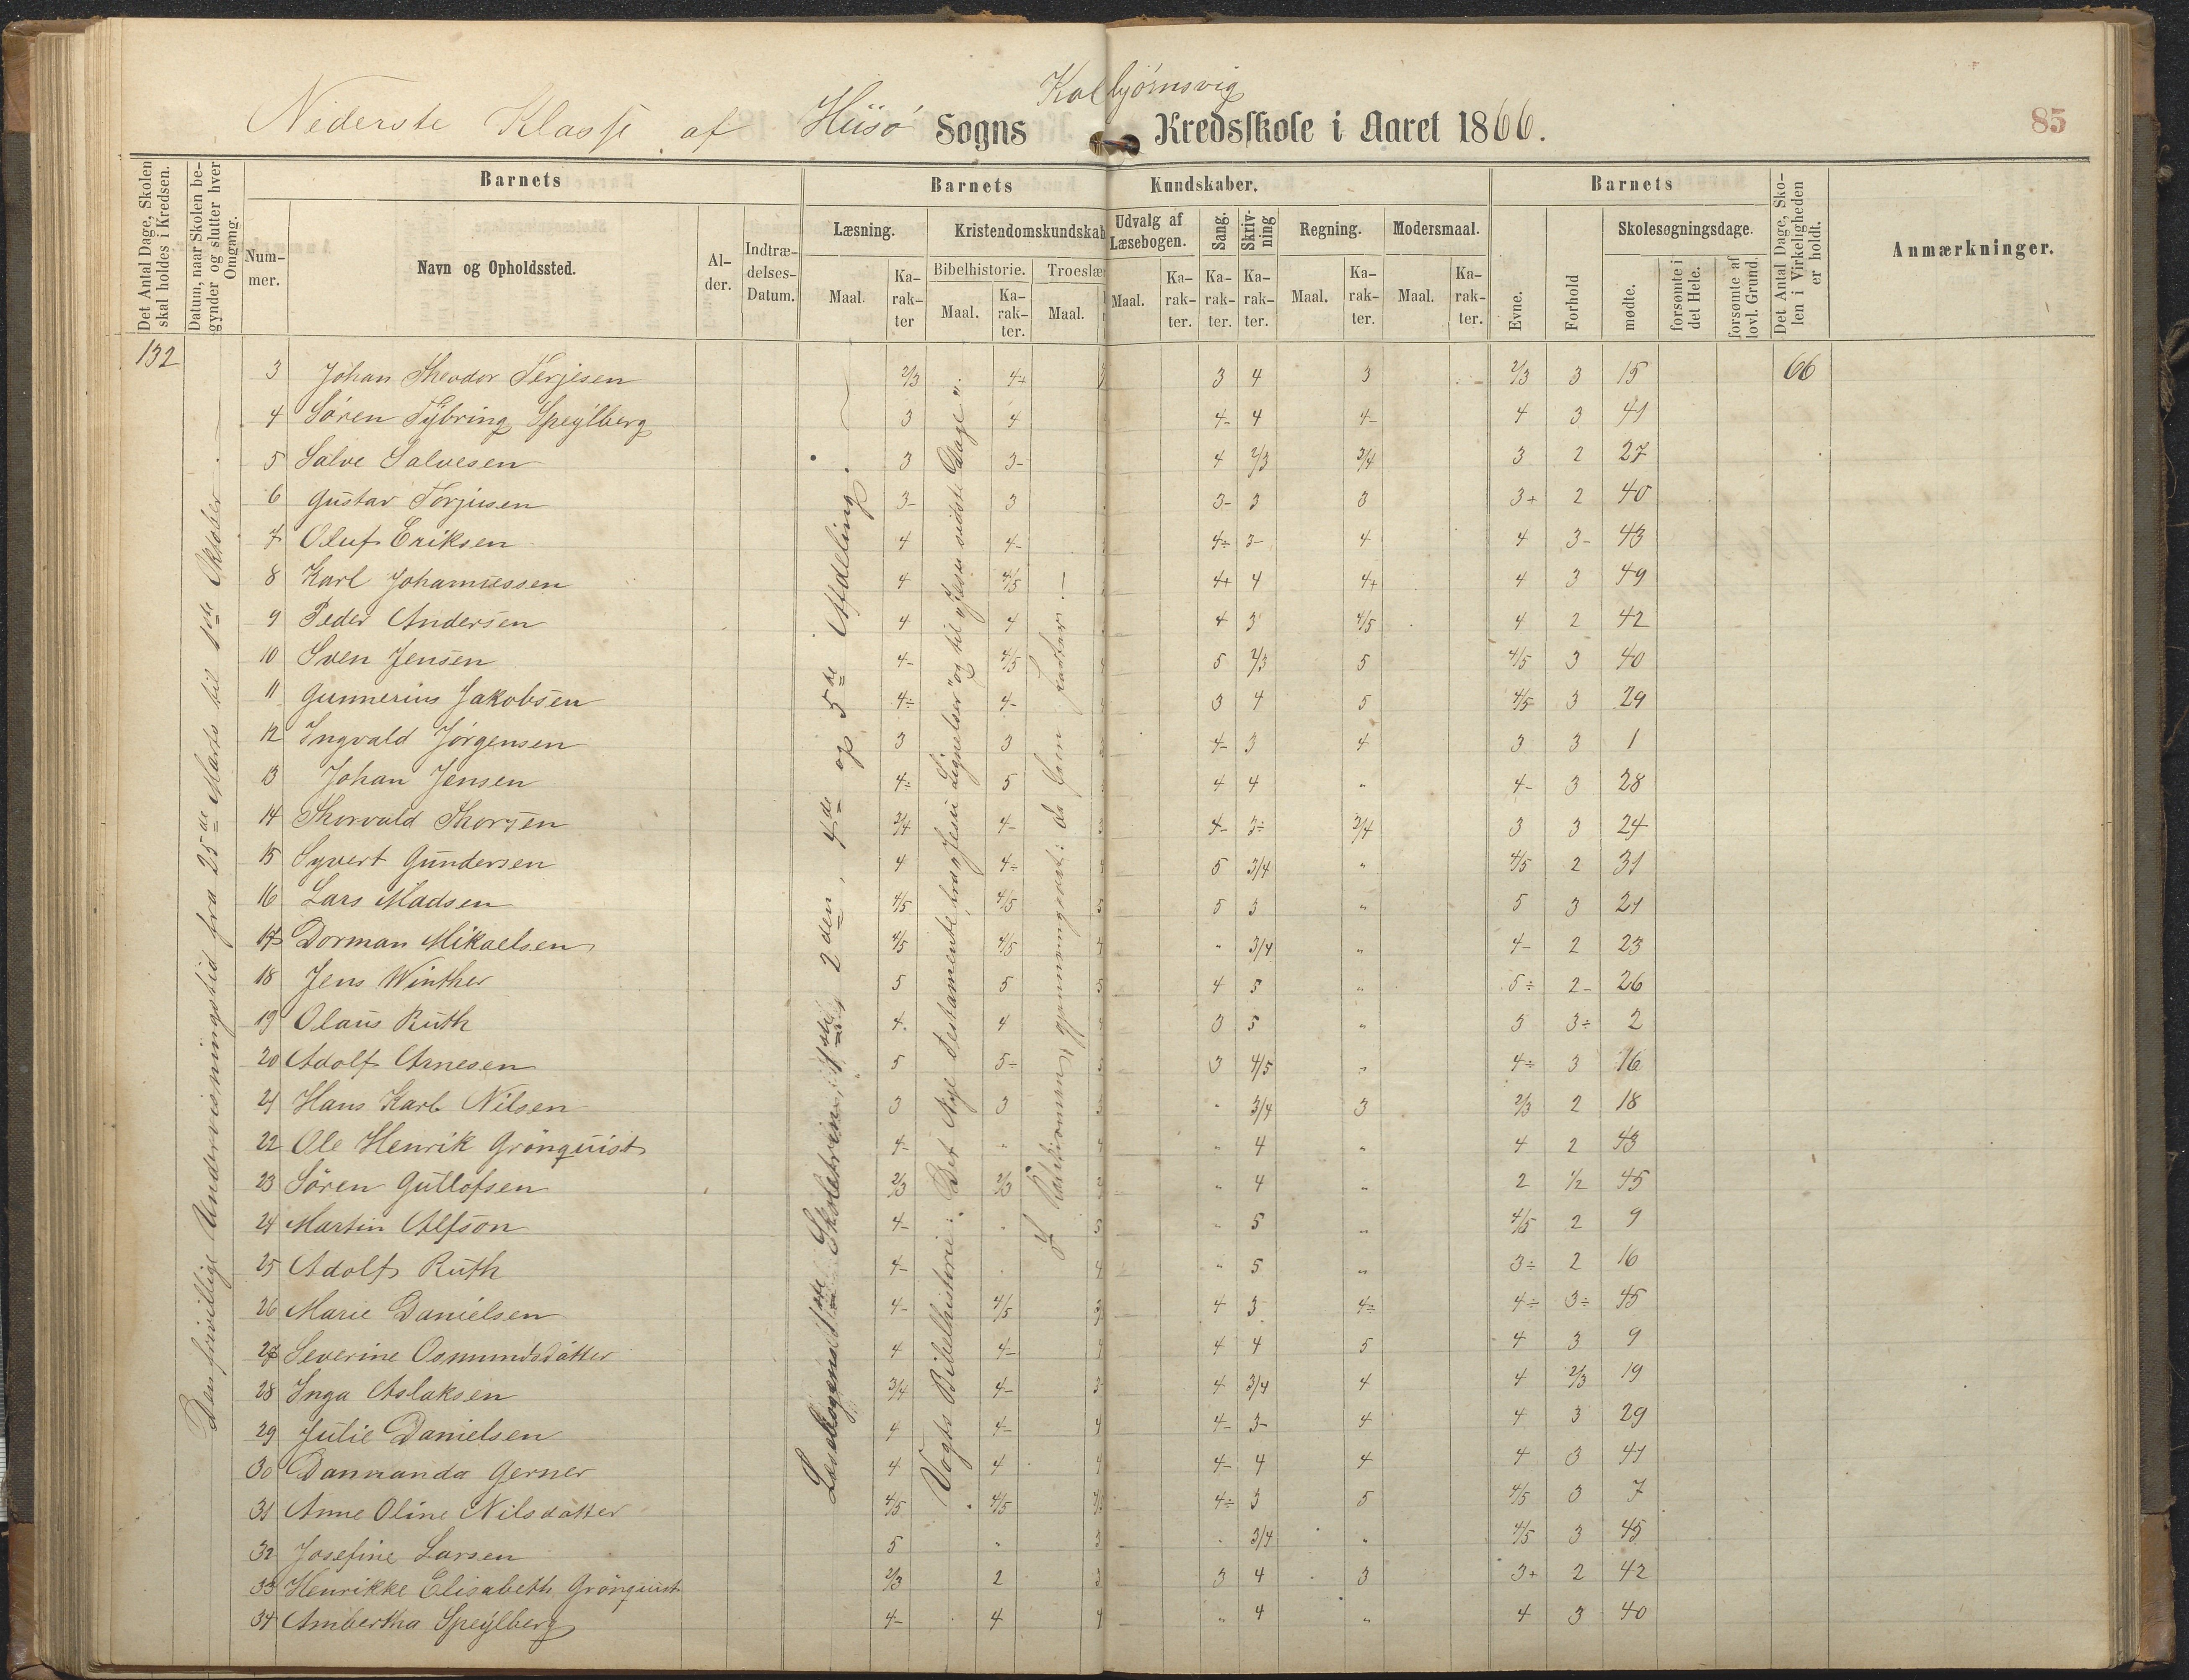 Kolbjørnsvig
Nederste Klasse af Hisö Sogns Kredsskole i Aaret 1866.
85
Det Antal Dage, Skolen skal holdes i Kredsen.
Datum, naar Skolen begynder og slutter hver Omgang.
Barnets
Barnets Kundskaber.
Barnets
Det Antal Dage, Skolen i Virkeligheden er holdt.
Anmærkninger.
Nummer.
Navn og Opholdssted.
Alder.
Indtrædelses-Datum.
Læsning.
Kristendomskundskab
Udvalg af Læsebogen.
Sang.
Skrivning
Regning.
Modersmaal.
Evne.
Forhold
Skolesøgningsdage.
Bibelhistorie.
Troeslær
Maal.
Karakter
Maal.
Karakter.
Maal.
Maal.
Karakter.
Karakter.
Karakter.
Maal.
Karakter.
Maal.
Karakter.
mødte.
forsømte i det Hele.
forsømte af lovl. Grund.
132
Den frivillige Undervisningstid fra 25de Marts til 1ste Oktober
Læsebogens 1ste Skoletrin, 1ste, 2den, 4de og 5te Afdeling.
Vogts Bibelhistorie: Det Nye Testamente fra "Jesu Lignelser" og til "Jesu sidste Dage".
3 Johan Theodor Terjesen 2/3 4+ 3 4 3 2/3 3 15 66
4 Sören Tybring Speylberg 3 4 4- 4 4- 4 3 41
5 Salve Salvesen 3 3- 4 2/3 3/4 3 2 27
6 Gustav Torjusen 3- 3 3- 3 3 3+ 2 40
7 Oluf Eriksen 4 4- 4÷ 3- 4 4 3- 43
8 Karl Johannessen 4 4/5 4+ 4 4+ 4 3 49
9 Peder Andersen 4 4 4 3 4/5 4 2 42
10 Sven Jensen 4- 4/5 5 2/3 5 4/5 3 40
11 Gunnerius Jakobsen 4÷ 4- 3 4 5 4/5 3 29
12 Ingvald Jörgensen 3 3 4- 3 4 3 3 1
13 Johan Jensen 4÷ 5 4 4 " 4- 3 28
14 Thorvald Thorsen 3/4 4- 4- 3÷ 3/4 3 3 24
15 Syvert Gundersen 4 4÷ 5 3/4 " 4/5 2 31
16 Lars Madsen 4/5 4/5 5 3 " 5 3 21
17 Dorman Mikaelsen 4/5 4/5 " 3/4 " 4- 2 23
18 Jens Winther 5 5 4 5 " 5÷ 2- 26
19 Olaus Ruth 4 4 3 5 " 3 3÷ 2
20 Adolf Arnesen 5 5÷ 3 4/5 " 4÷ 3 16
21 Hans Karl Nilsen 3 3 " 3/4 3 2/3 2 18
22 Ole Henrik Grönquist 4÷ " " 4 " 4 2 43
23 Sören Gutlofsen 2/3 2/3 " 4 " 2 1/2 45
24 Martin Alfson 4- " " 5 " 4/5 2 9
25 Adolf Ruth 4- " 5 " 3÷ 2 16
26 Marie Danielsen 4- 4/5 4 3 4÷ 4÷ 3÷ 45
27 Severine Osmundsdatter 4 4- 4 4 5 4 3 9
28 Inga Aslaksen 3/4 4- 4 3/4 4 4 2/3 19
29 Julie Danielsen 4 4- 4- 3- 4 4 3 29
30 Dannanda Gerner 4 4 4- 4 4 4 3 41
31 Anne Oline Nilsdatter 4/5 4/5 4÷ 3 5 4/5 3 7
32 Josefine Larsen 5 " 3/4 " 4/5 3 45
33 Henrikke Elisabeth Grönquist 2/3 2 3 4 3 3+ 2 42
34 Ambertha Speylberg 4- 4 " 4 " 4 3 40